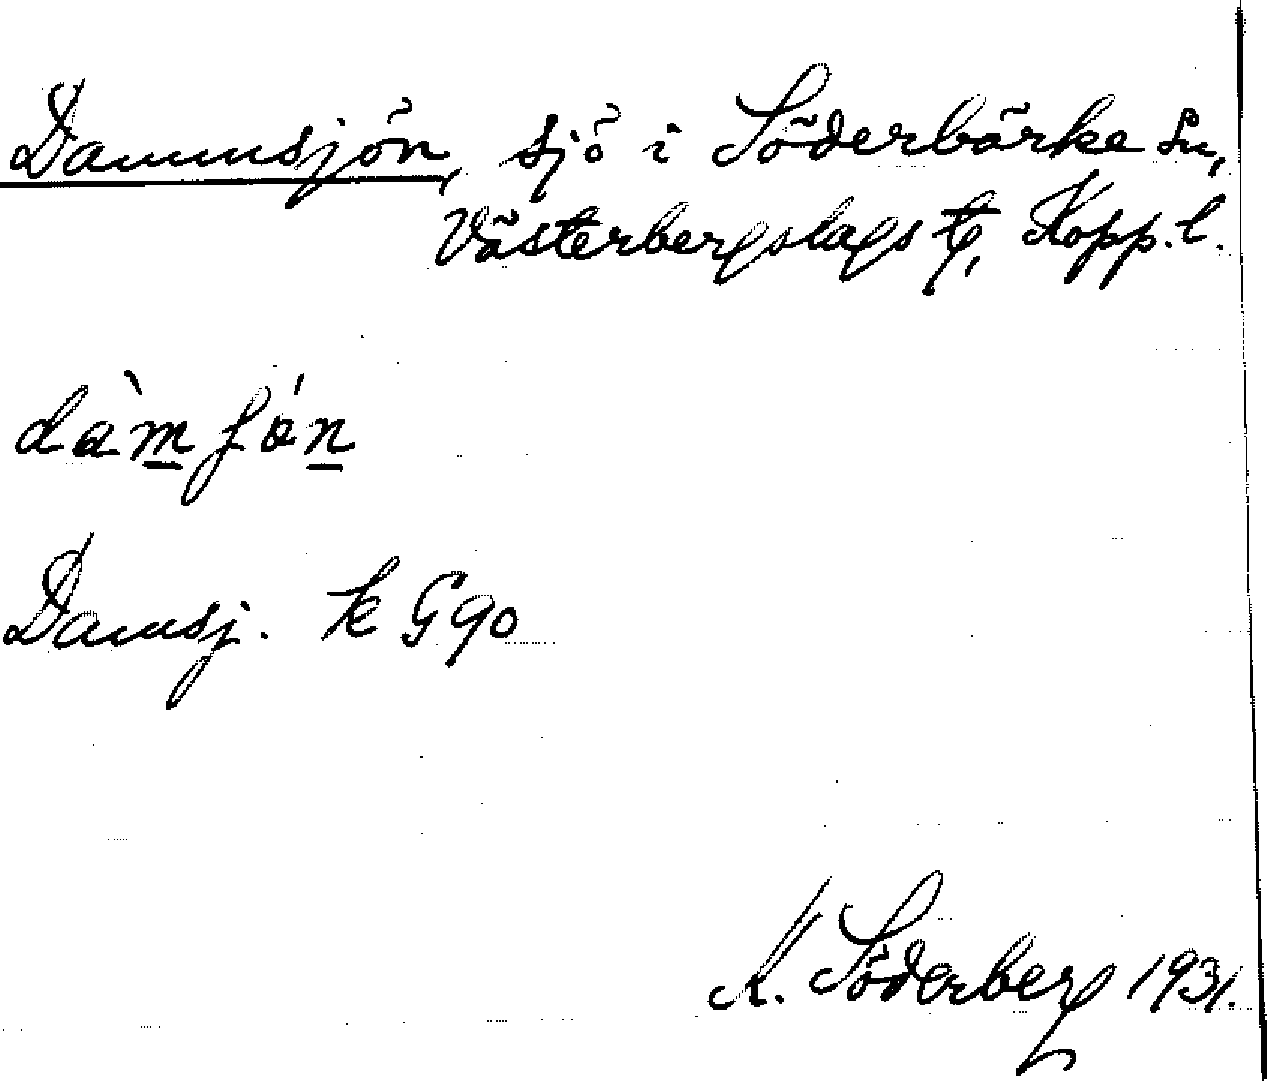 Dammsjön, sjö i Söderbärke sn,
Västerbergslags tg, Kopp. l.
dàmʃö́n
Damsj. k G90
K. Söderberg 1931.